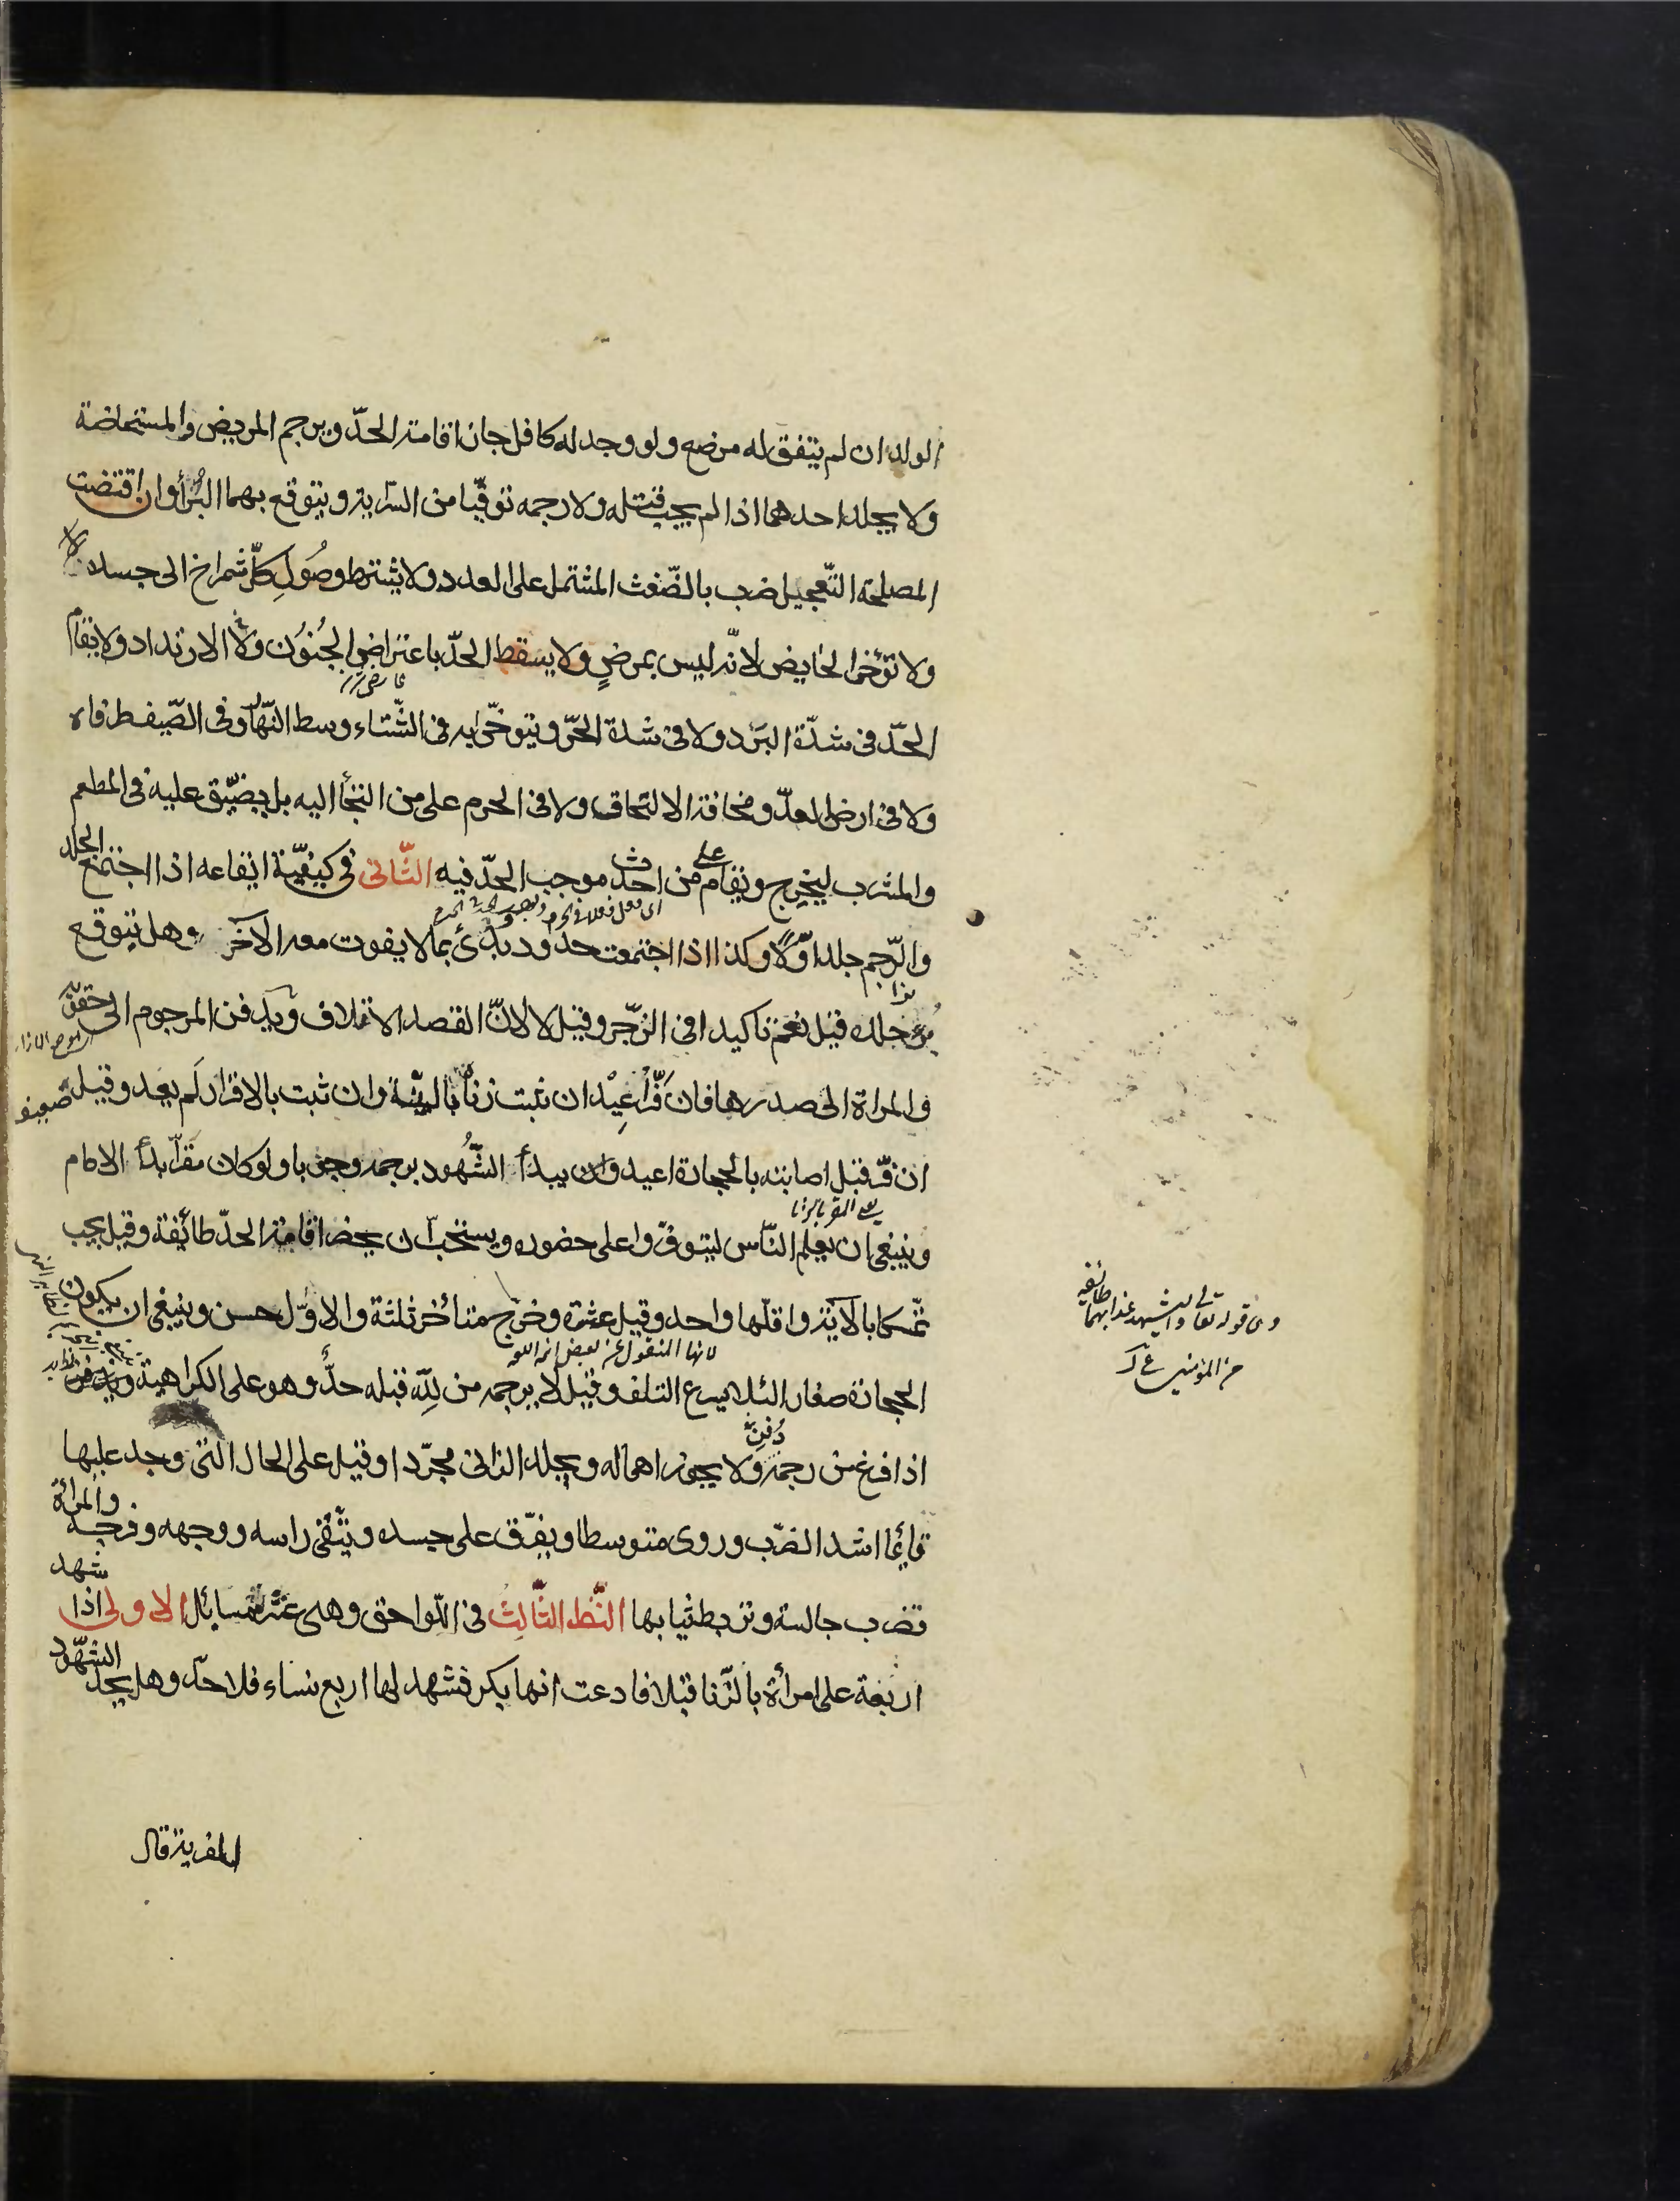 الولد ان لم يتفق له مرضع ولو وجد له كافل جاز اقامة الحدّ ويرجم المريض والمستحاضة
ولا يجلد احدهما اذا لم يجب قتله ولا رجمه توقّيا من السّراية ويتوقع بهما البُرأ وان اقتضت
المصلحة التّعجيل ضرب بالضّغث المشتمل على العدد ولا يشترط وصُولِ كلّ شمراخ الى جسده
ولا تؤخر الحايض لانّه ليس بمرضٍ ولا يسقط الحدّ باعتراض الجُنوُن ولا الارتداد ولا يقام
الحدّ فى شدّة البَرد ولا فى شدة الحرّ ويتوخّى به فى الشّتاء وسط النّهار وفى الصّيف طرفاه
ولا فى ارض العدّو مخافة الالتحاق ولا فى الحرم على من التجأ اليه بل يضيّق عليه فى المطعم
والمشرب ليخرج ويقام على من احدث موجب الحدّ فيه الثّانى فى كيفيّة ايقاعه اذا اجتمع الجلد
والرّجم جلد اوّلاً وكذا اذا اجتمعت حدود بدئ بما لا يفوت معه الآخر وهل يتوقع
برؤ جلده قيل نعم تاكيدا فى الزّجر وقيل لا لانّ القصد الاتلاف ويدفن المرجوم الى حقويه
والمراة الى صدرها فان فَرّ اُعِيْد ان ثبت زناه بالبيّنة وان ثبت بالاقرار لم يعد وقيل
ان فرّ قبل اصابته بالحجارة اعيد وان يبدأ الشّهُود برجمه وجوبا ولو كان مقرّا بدأ الامام
يعلى المقر بالزنا
وينبغى ان يعلم النّاس ليتوفّروا على حضوره ويستحبّ ان يحضر اقامة الحدّ طائفة وقيل يجب
تمسّكا بالآية واقلّها واحد وقيل عشرة وخرّج متأخر ثلثة والاوّل حسن وينبغى ان يكون
الحجارة صغارا لئلا يسرع التلف وقيل لا يرجمه من لِلّه قبله حدٌّ وهو على الكراهية
اذا فرغ من رجمه دُفِنَ ولا يجوز اهماله ويجلد الزانى مجرّدا وقيل على الحال التى وجد عليها
قائما اشد الضّرب وروى متوسطا ويفرّق على جسده ويتّقى راسه ووجهه وفرجه والمراة
تضرب جالسة وتربط ثيابها النّظر الثّالثُ فى اللّواحق وهى عشرة مسايل الاولى اذا شهد
اربعة على امراة بالزّنا قبلا فادعت انها بكر فشهد لها اربع نساء فلا حدّ وهل يحدّ الشهّود
للفرية قال
وهى قوله تعالى وليشهد عذابهما طائفة
من المؤمنين